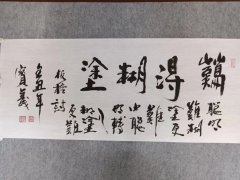 難得糊塗
聰明
難糊
塗更
難
由聰
明轉
入
糊塗
更難
板橋詩
辛丑年